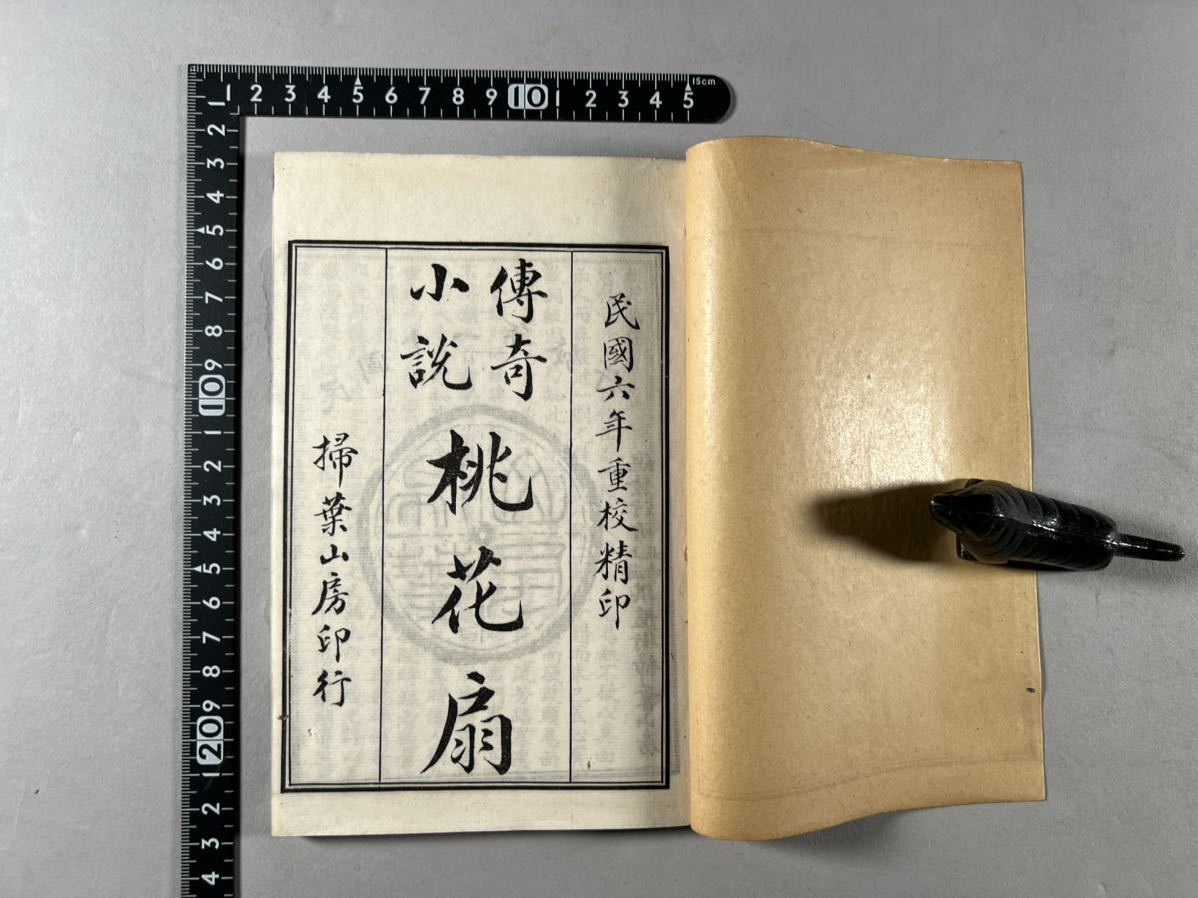 民國六年重校精印
傳奇
小說
桃花扇
掃葉山房印行
1 2 3 4 5 6 7 8 9 10 1 2 3 4 5
15cm
1 2 3 4 5 6 7 8 9 10 1 2 3 4 5 6 7 8 9 20 1 2 3 4